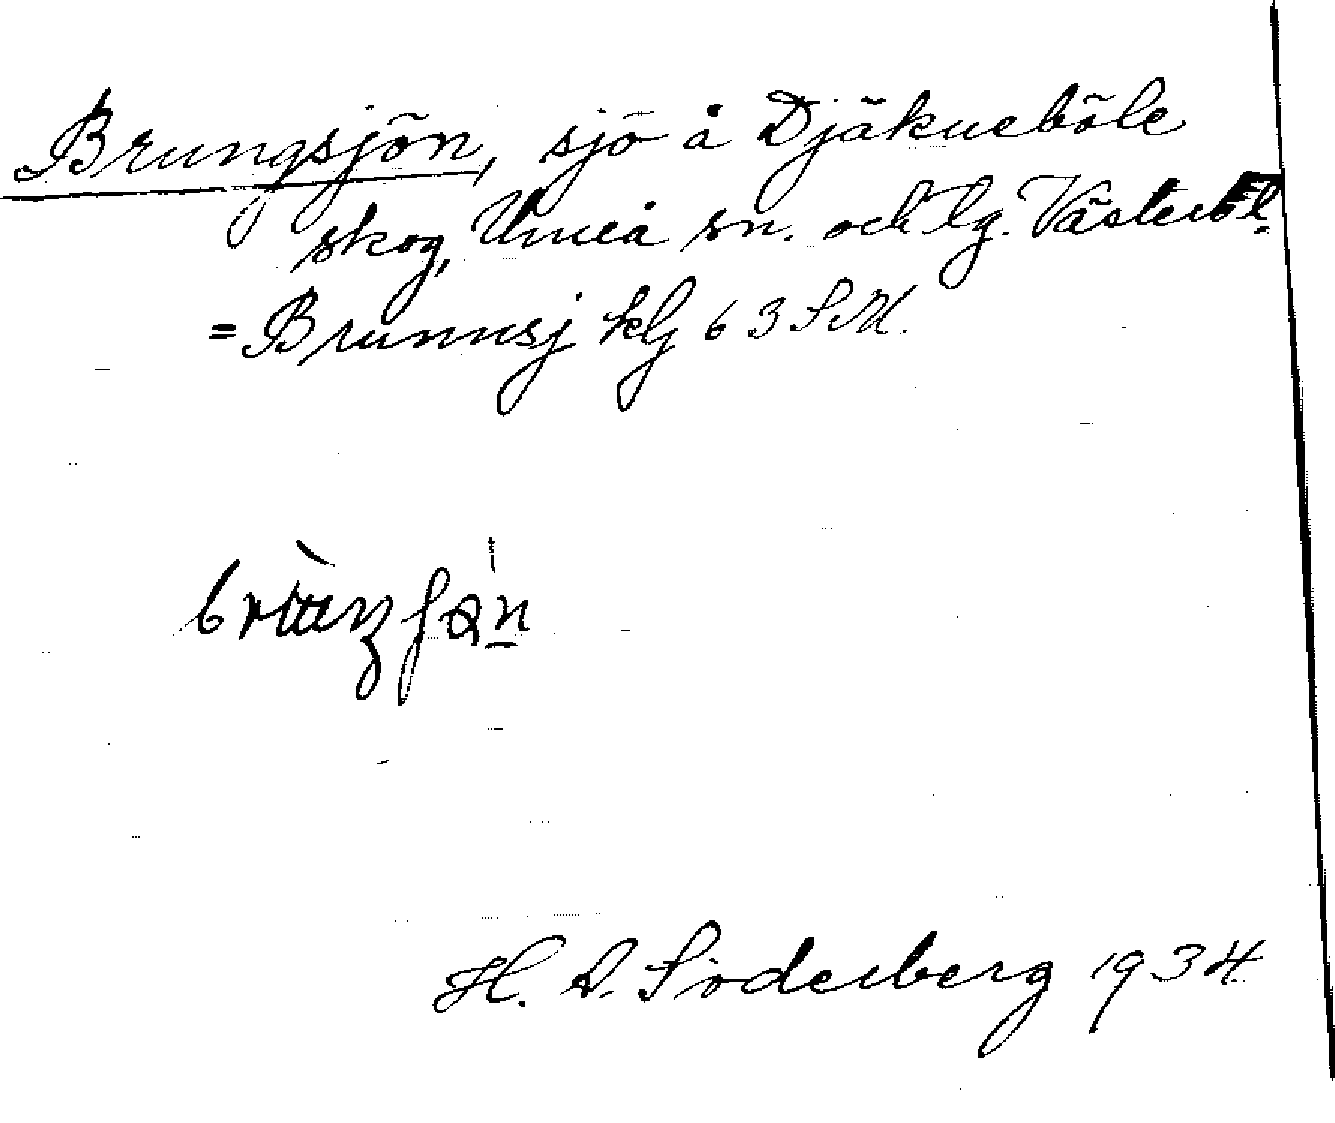 Brungsjön, sjö å Djäkneböle
skog, Umeå sn. och tg. Västerb. l.
= Brunnsj klj 63 S.M.
H. D. Söderberg 1934